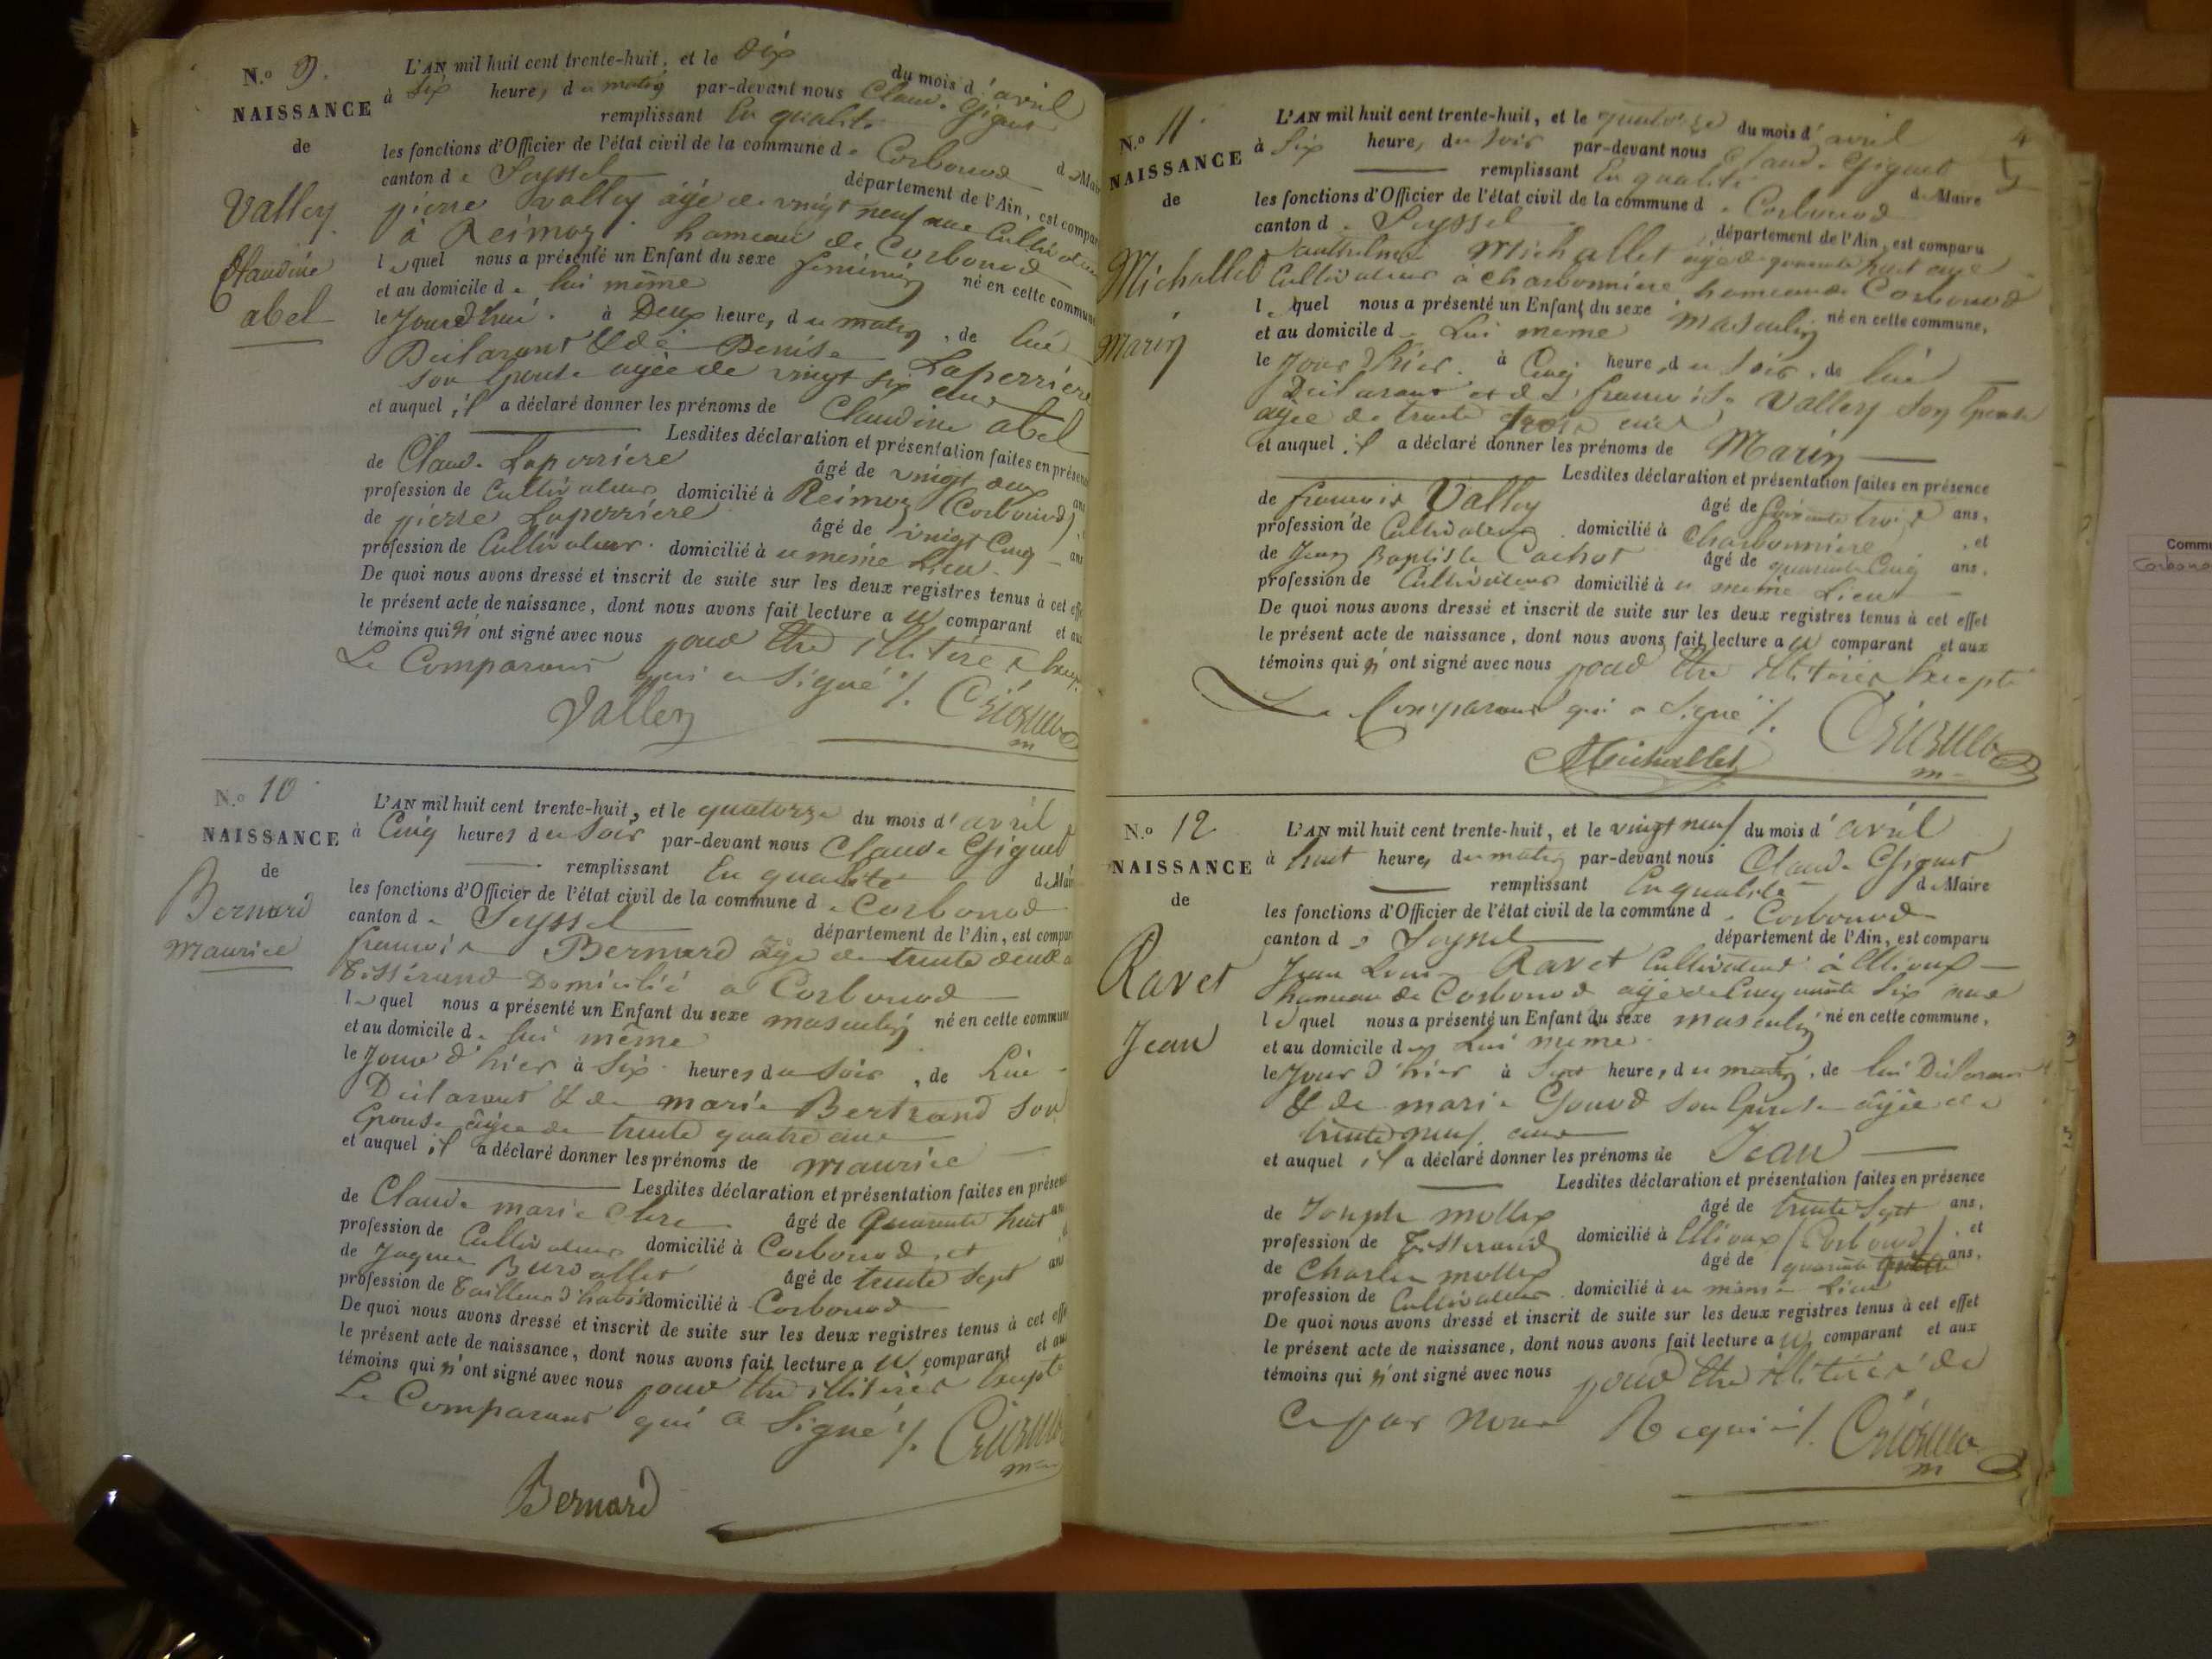 N.o 9.
NAISSANCE
de
Valley
Claudine
abel
L'AN mil huit cent trente-huit, et le dix du mois d'avril
à six heures du matin par-devant nous Claude Giguet
remplissant En qualité de Maire
les fonctions d'Officier de l'état civil de la commune de Corbonod
canton de Seyssel département de l'Ain, est comparu
pierre Valley âgé de vingt neuf ans Cultivateur
à Reimoz hameau de Corbonod
lequel nous a présenté un Enfant du sexe feminin né en cette commune
et au domicile de lui même
le Jourd'hui à Deux heures du matin, de lui
Déclarant & de Denise Laperriere
son Epouse agée de vingt six ans
et auquel il a déclaré donner les prénoms de Claudine abel
Lesdites déclaration et présentation faites en présence
de Claude Laperriere âgé de vingt deux ans
profession de Cultivateur domicilié à Reimoz (Corbonod),
de pierre Laperriere âgé de vingt Cinq ans
profession de Cultivateur domicilié à ce même Lieu
De quoi nous avons dressé et inscrit de suite sur les deux registres tenus à cet effet
le présent acte de naissance, dont nous avons fait lecture a u comparant et aux
témoins qui n'ont signé avec nous pour être illitérés
Le Comparant qui a signé ./.
Valley
N.o 10
NAISSANCE
de
Bernard
Maurice
L'AN mil huit cent trente-huit, et le quatorze du mois d'avril
à Cinq heures du soir par-devant nous Claude Giguet
remplissant En qualité de Maire
les fonctions d'Officier de l'état civil de la commune de Corbonod
canton de Seyssel département de l'Ain, est comparu
francois Bernard âgé de trente deux
Tisserand Domicilié a Corbonod
lequel nous a présenté un Enfant du sexe masculin né en cette commune
et au domicile de lui même
le Jour d'hier à Six heures du soir, de Lui
Déclarant & de marie Bertrand son
Epouse âgée de trente quatre ans
et auquel il a déclaré donner les prénoms de maurice
Lesdites déclaration et présentation faites en présence
de Claude marie âgé de Quarante huit ans
profession de Cultivateur domicilié à Corbonod, et
de Jaques Burdallet âgé de trente sept ans
profession de Tailleur d'habits domicilié à Corbonod
De quoi nous avons dressé et inscrit de suite sur les deux registres tenus à cet effet
le présent acte de naissance, dont nous avons fait lecture a u comparant et aux
témoins qui n'ont signé avec nous pour être illitérés Excepté
Le Comparant qui a signé ./.
Bernard
N.o 11
NAISSANCE
de
Michallet
Marin
L'AN mil huit cent trente-huit, et le quatorze du mois d'avril
à Six heures du soir par-devant nous Claude Giguet
remplissant En qualité de Maire
les fonctions d'Officier de l'état civil de la commune de Corbonod
canton de Seyssel département de l'Ain, est comparu
anthelme Michallet agé de quarante huit ans
Cultivateur à Charbonniere, hameau de Corbonod
lequel nous a présenté un Enfant du sexe masculin né en cette commune,
et au domicile de Lui meme
le Jour d'hier à Cinq heures du soir, de lui
Déclarant et de francoise Vallery son Epouse
agée de trente trois ans
et auquel il a déclaré donner les prénoms de Marin
Lesdites déclaration et présentation faites en présence
de francois Valley âgé de soixante trois ans,
profession de Cultivateur domicilié à Charbonniere, et
de Jean Baptiste Cochot âgé de quarante Cinq ans,
profession de Cultivateur domicilié à ce même Lieu
De quoi nous avons dressé et inscrit de suite sur les deux registres tenus à cet effet
le présent acte de naissance, dont nous avons fait lecture a u comparant et aux
témoins qui n'ont signé avec nous pour être illitérés Excepté
Le Comparant qui a Signé ./.
Michallet
N.o 12
NAISSANCE
de
Ravet
Jean
L'AN mil huit cent trente-huit, et le vingt neuf du mois d'avril
à huit heures du matin par-devant nous Claude Giguet
remplissant En qualité de Maire
les fonctions d'Officier de l'état civil de la commune de Corbonod
canton de Seyssel département de l'Ain, est comparu
Jean Louis Ravet Cultivateur à Elioux
hameau de Corbonod agé de Cinquante Six ans
lequel nous a présenté un Enfant du sexe masculin né en cette commune,
et au domicile de Lui meme
le Jour d'hier à Sept heures du matin, de lui Déclarant
& de marie Gouod son Epouse âgée de
trente neuf ans
et auquel il a déclaré donner les prénoms de Jean
Lesdites déclaration et présentation faites en présence
de Joseph mollex âgé de trente Sept ans,
profession de Tisserand domicilié à Elioux (Corbonod), et
de Charles mollex âgé de quarante ans,
profession de Cultivateur domicilié à ce même Lieu
De quoi nous avons dressé et inscrit de suite sur les deux registres tenus à cet effet
le présent acte de naissance, dont nous avons fait lecture a u comparant et aux
témoins qui n'ont signé avec nous pour être illitérés de
Ce par nous Requis ./.